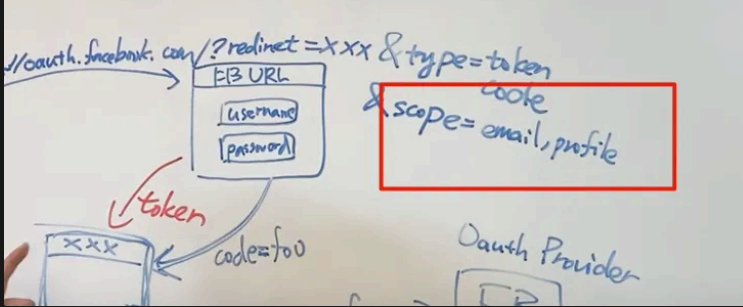 //oauth.facebook.com/?redirect=xxx &type=token
code
&scope=email,profile
FB URL
username
password
token
code=foo
xxx
Oauth Provider
FB